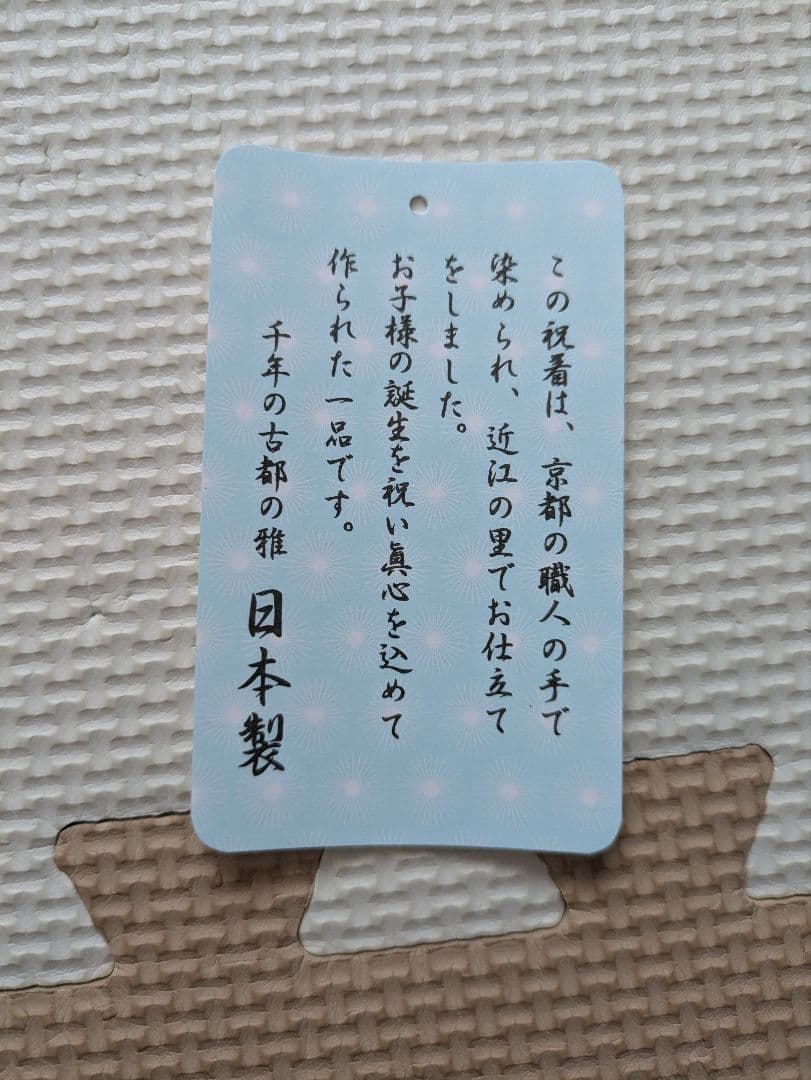 この祝着は、京都の職人の手で
染められ、近江の里でお仕立て
をしました。
お子様の誕生を祝い眞心を込めて
作られた一品です。
千年の古都の雅 日本製